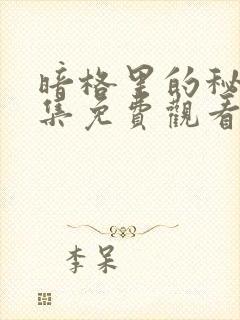 暗格里的秘
集免費觀看
李呆